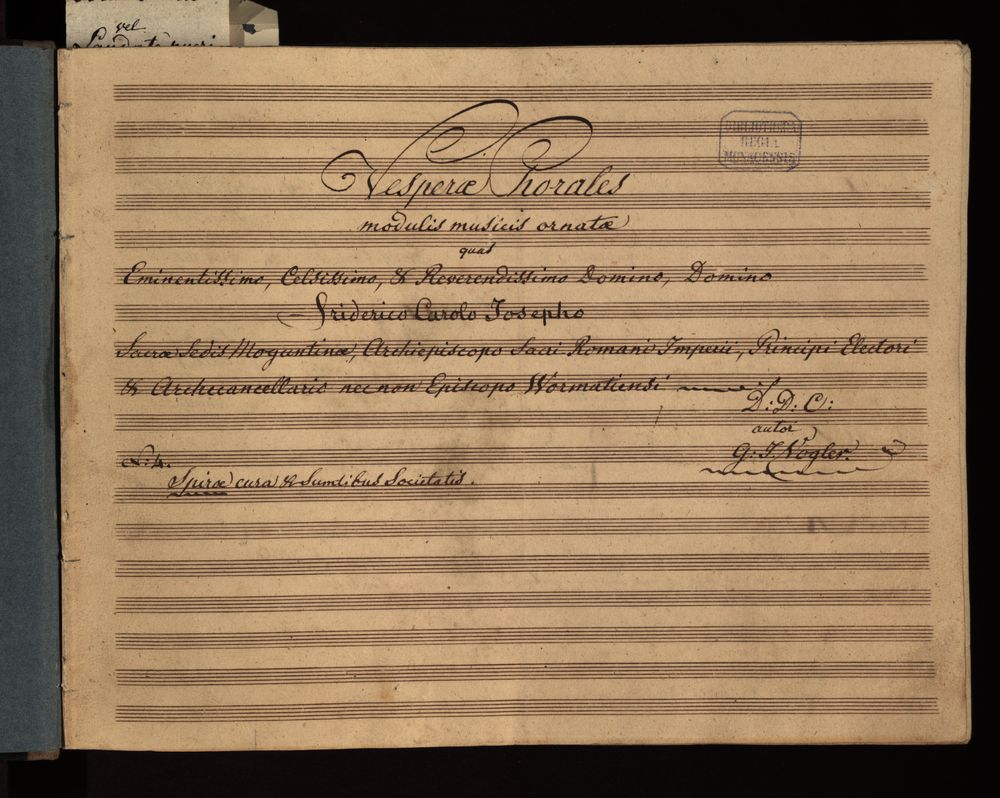 vel
Laudate pueri
BIBLIOTHECA
REGIA
MONACENSIS
Vesperæ Chorales
modulis musicis ornatæ
quas
Eminentissimo, Celsissimo, & Reverendissimo Domino, Domino
Friderico Carolo Josepho
Sacræ Sedis Moguntinæ, Archiepiscopo Sacri Romani Imperii, Principi Electori
& Archicancellario nec non Episcopo Wormatiensi
D: D: C:
autor
G: J. Vogler.
N: 4.
Spiræ cura & Sumtibus Societatis.